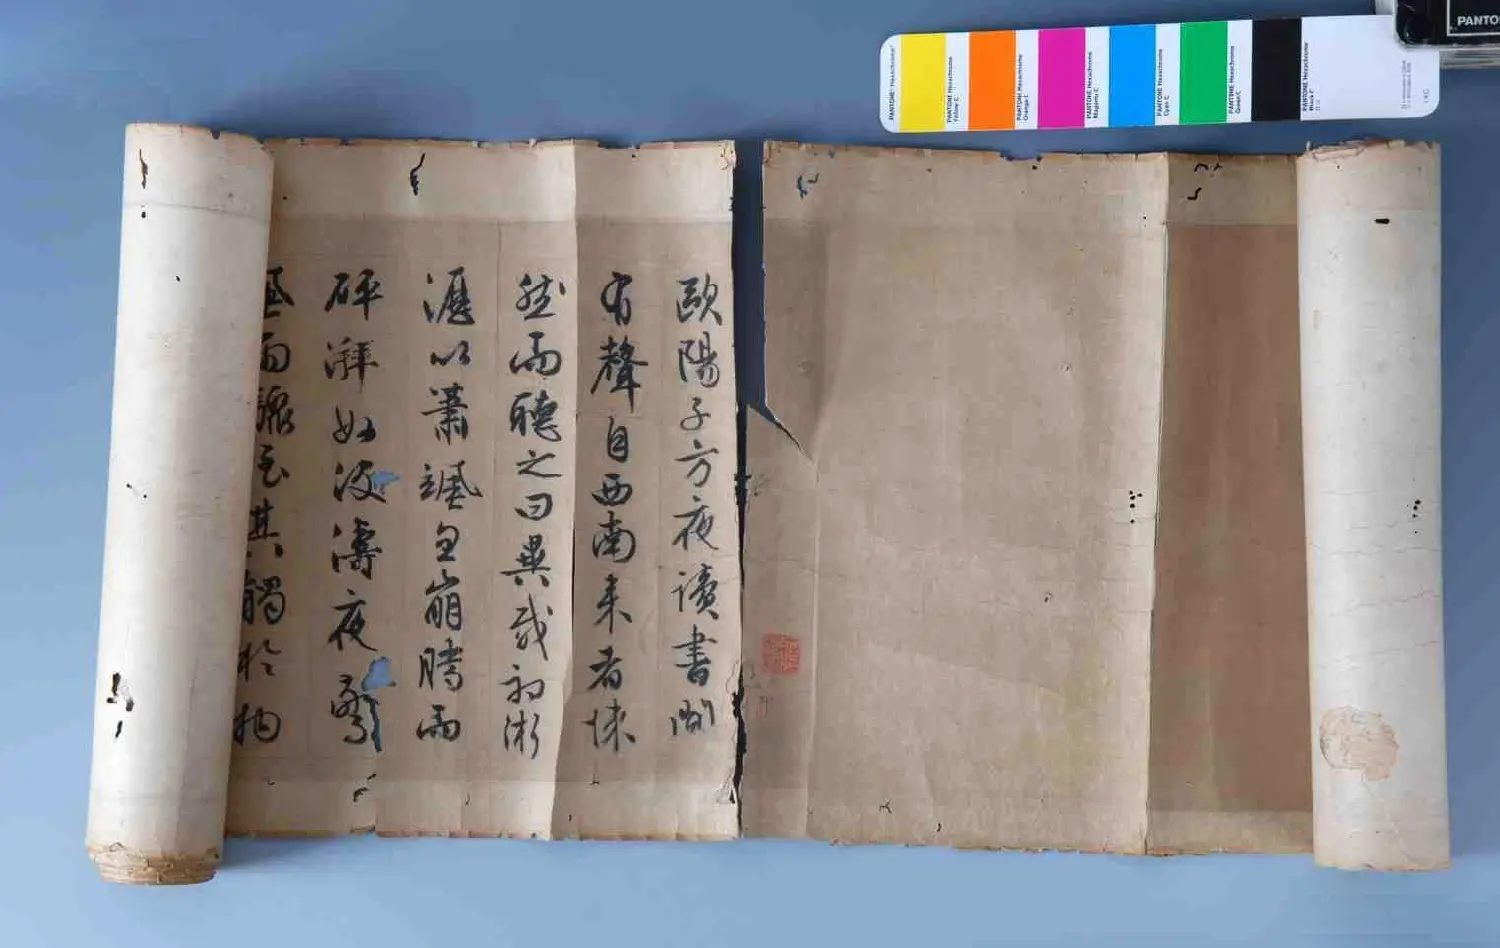 歐陽子方夜讀書聞
有聲自西南来者悚
然而聽之曰異哉初淅
瀝以蕭颯忽崩騰而
砰湃如波濤夜驚
風雨驟至其觸於物
PANTONE® Hexachrome®
PANTONE Hexachrome Yellow C
PANTONE Hexachrome Orange C
PANTONE Hexachrome Magenta C
PANTONE Hexachrome Cyan C
PANTONE Hexachrome Green C
PANTONE Hexachrome Black C